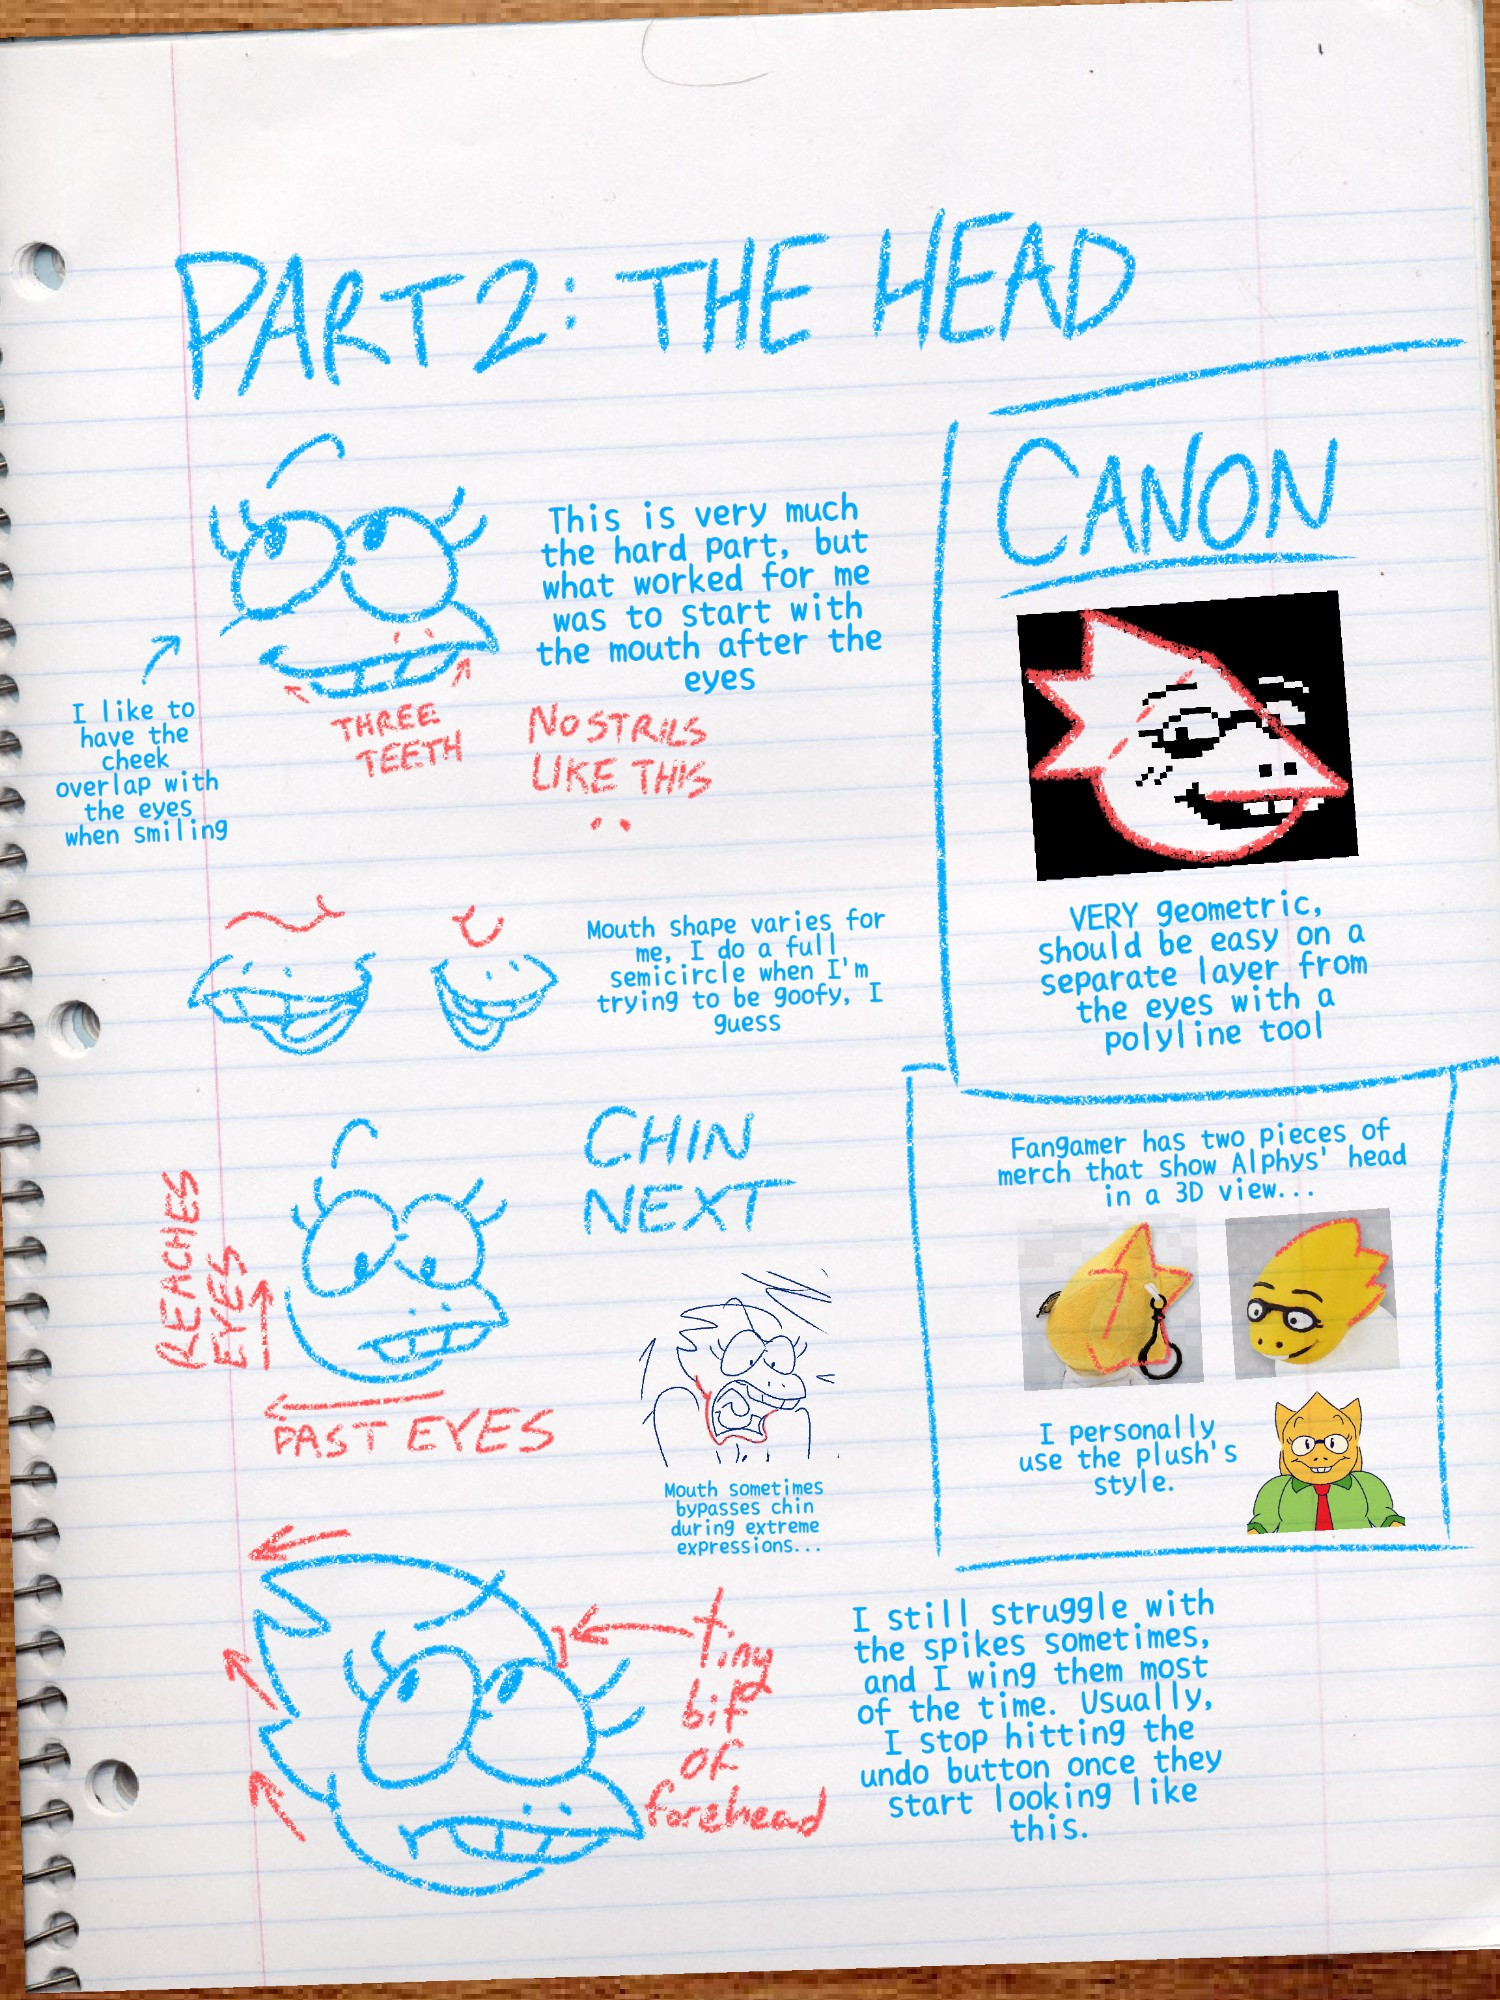 PART 2: THE HEAD
This is very much
the hard part, but
what worked for me
was to start with
the mouth after the
eyes
I like to
have the
cheek
overlap with
the eyes
when smiling
THREE
TEETH
NOSTRILS
LIKE THIS
Mouth shape varies for
me, I do a full
semicircle when I'm
trying to be goofy, I
guess
CHIN
NEXT
REACHES
EYES
PAST EYES
Mouth sometimes
bypasses chin
during extreme
expressions...
tiny
bit
of
forehead
CANON
VERY geometric,
should be easy on a
separate layer from
the eyes with a
polyline tool
Fangamer has two pieces of
merch that show Alphys' head
in a 3D view...
I personally
use the plush's
style.
I still struggle with
the spikes sometimes,
and I wing them most
of the time. Usually,
I stop hitting the
undo button once they
start looking like
this.